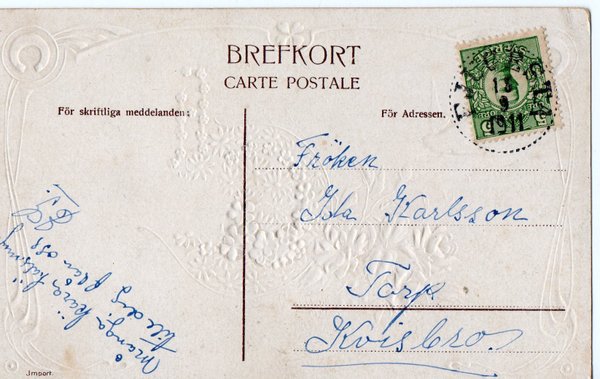 BREFKORT
CARTE POSTALE
För skriftliga meddelanden:
För Adressen.
13
9
1911
Fröken
Ida Karlsson
Torp
Kvisbro
många kära hälsning
till dig från oss
.Import.